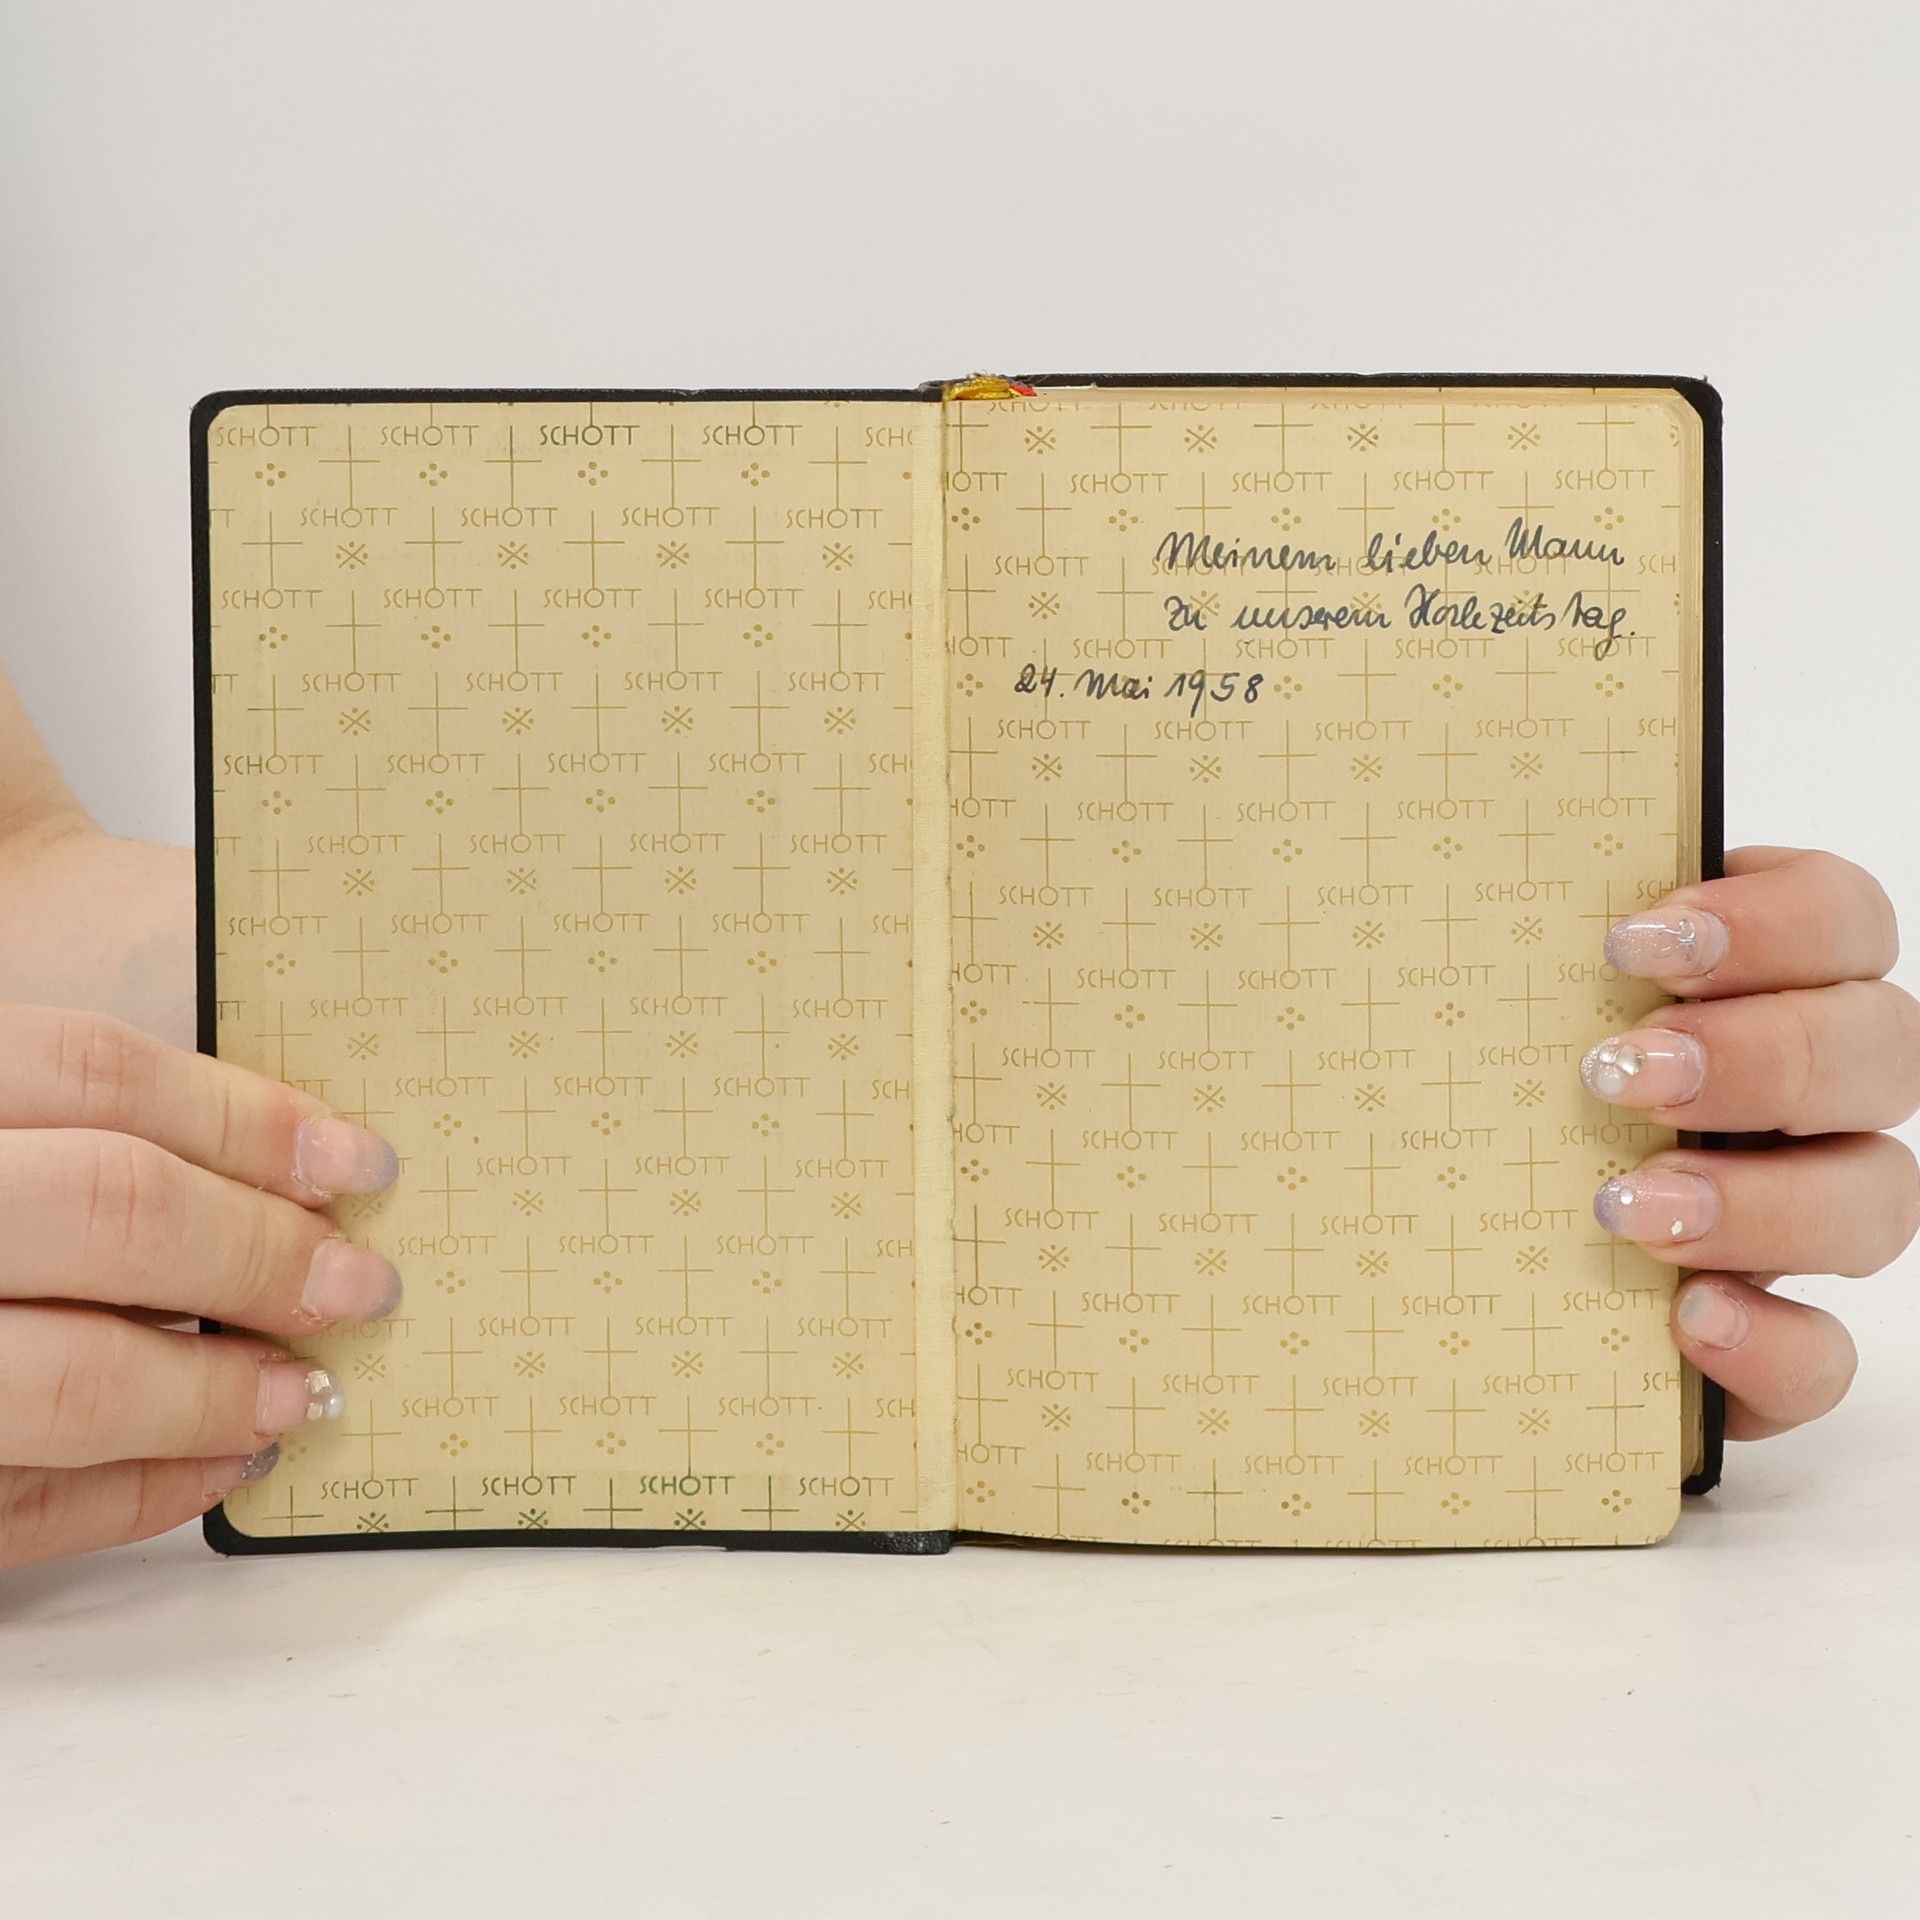 SCHOTT SCHOTT SCHOTT SCHOTT
Meinem lieben Mann
zu unserem Hochzeitstag.
24. Mai 1958